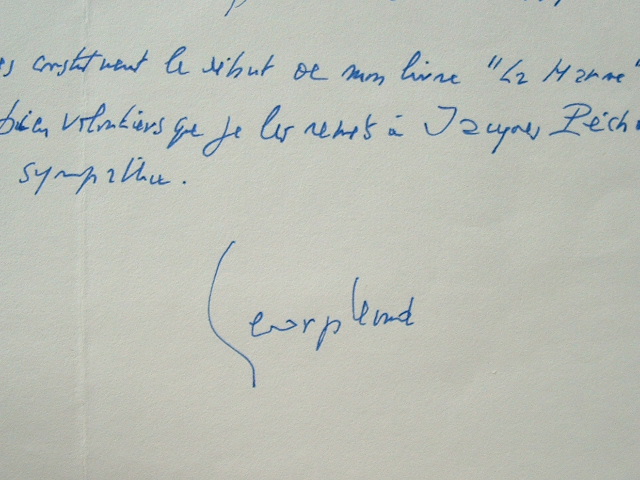 es constituent le début de mon livre "La Manne"
bien volontiers que je les remets à Jacques Péch
sympathie.